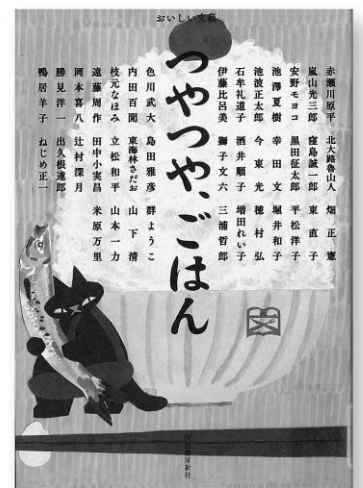 おいしい文藝
つやつや、ごはん
赤瀬川原平 北大路魯山人 畑正憲
嵐山光三郎 窪島誠一郎 東直子
安野モヨコ 黒田征太郎 平松洋子
池澤夏樹 幸田文 堀井和子
池波正太郎 今東光 穂村弘
石牟礼道子 酒井順子 増田れい子
伊藤比呂美 獅子文六 三浦哲郎
色川武大 島田雅彦 群ようこ
内田百閒 東海林さだお 山下清
枝元なほみ 立松和平 山本一力
遠藤周作 田中小実昌 米原万里
岡本喜八 辻村深月
勝見洋一 出久根達郎
鴨居羊子 ねじめ正一
河出書房新社